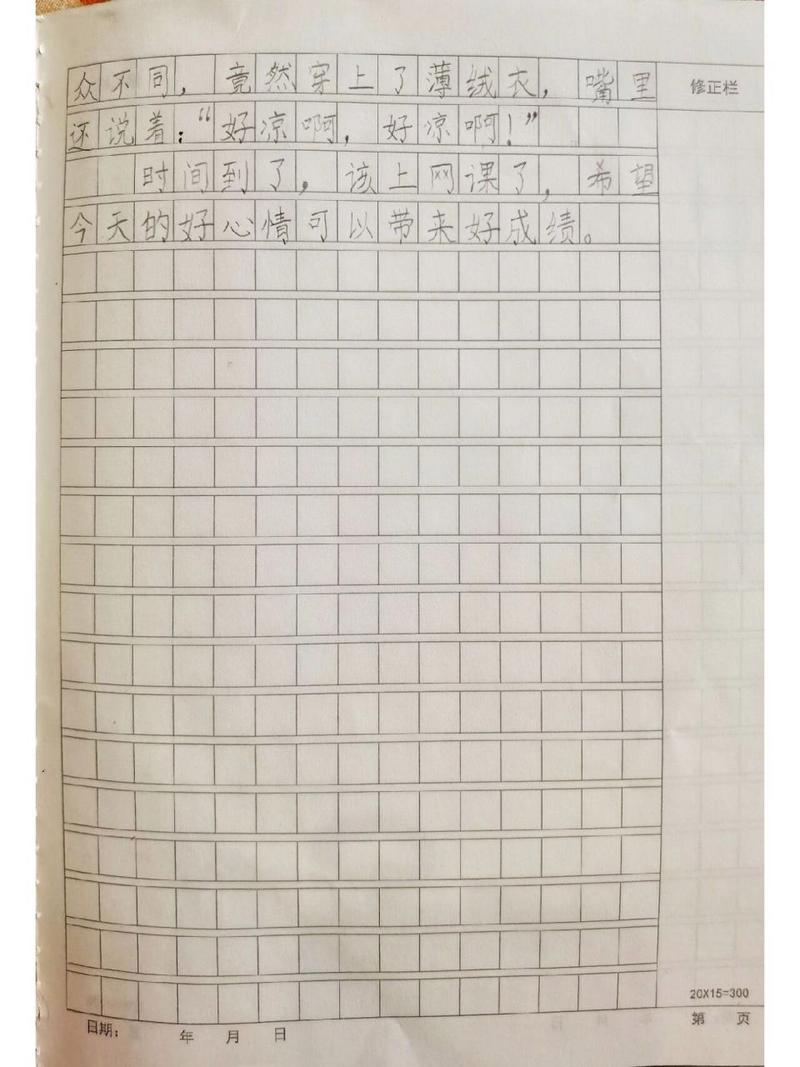 众不同，竟然穿上了薄绒衣，嘴里
修正栏
还说着：“好凉啊，好凉啊！”
时间到了，该上网课了，希望
今天的好心情可以带来好成绩。
20X15=300
日期： 年 月 日
第 页